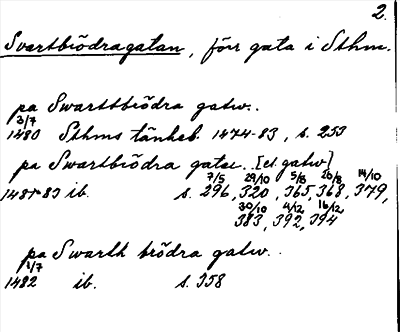 2.
Svartbrödragatan, förr gata i Sthm.
pa Swarttbrödra gatw..
3/7
1480 Sthms tänkeb. 1474-83, s. 253
pa Swartbrödra gatw.. [el. gatw]
7/5 29/10 5/8 26/8 14/10
1481-83 ib. s. 296, 320, 365, 368, 379,
30/10 4/12 16/12
383, 392, 394
pa Swarth brödra gatw..
1/7
1482 ib. s. 358